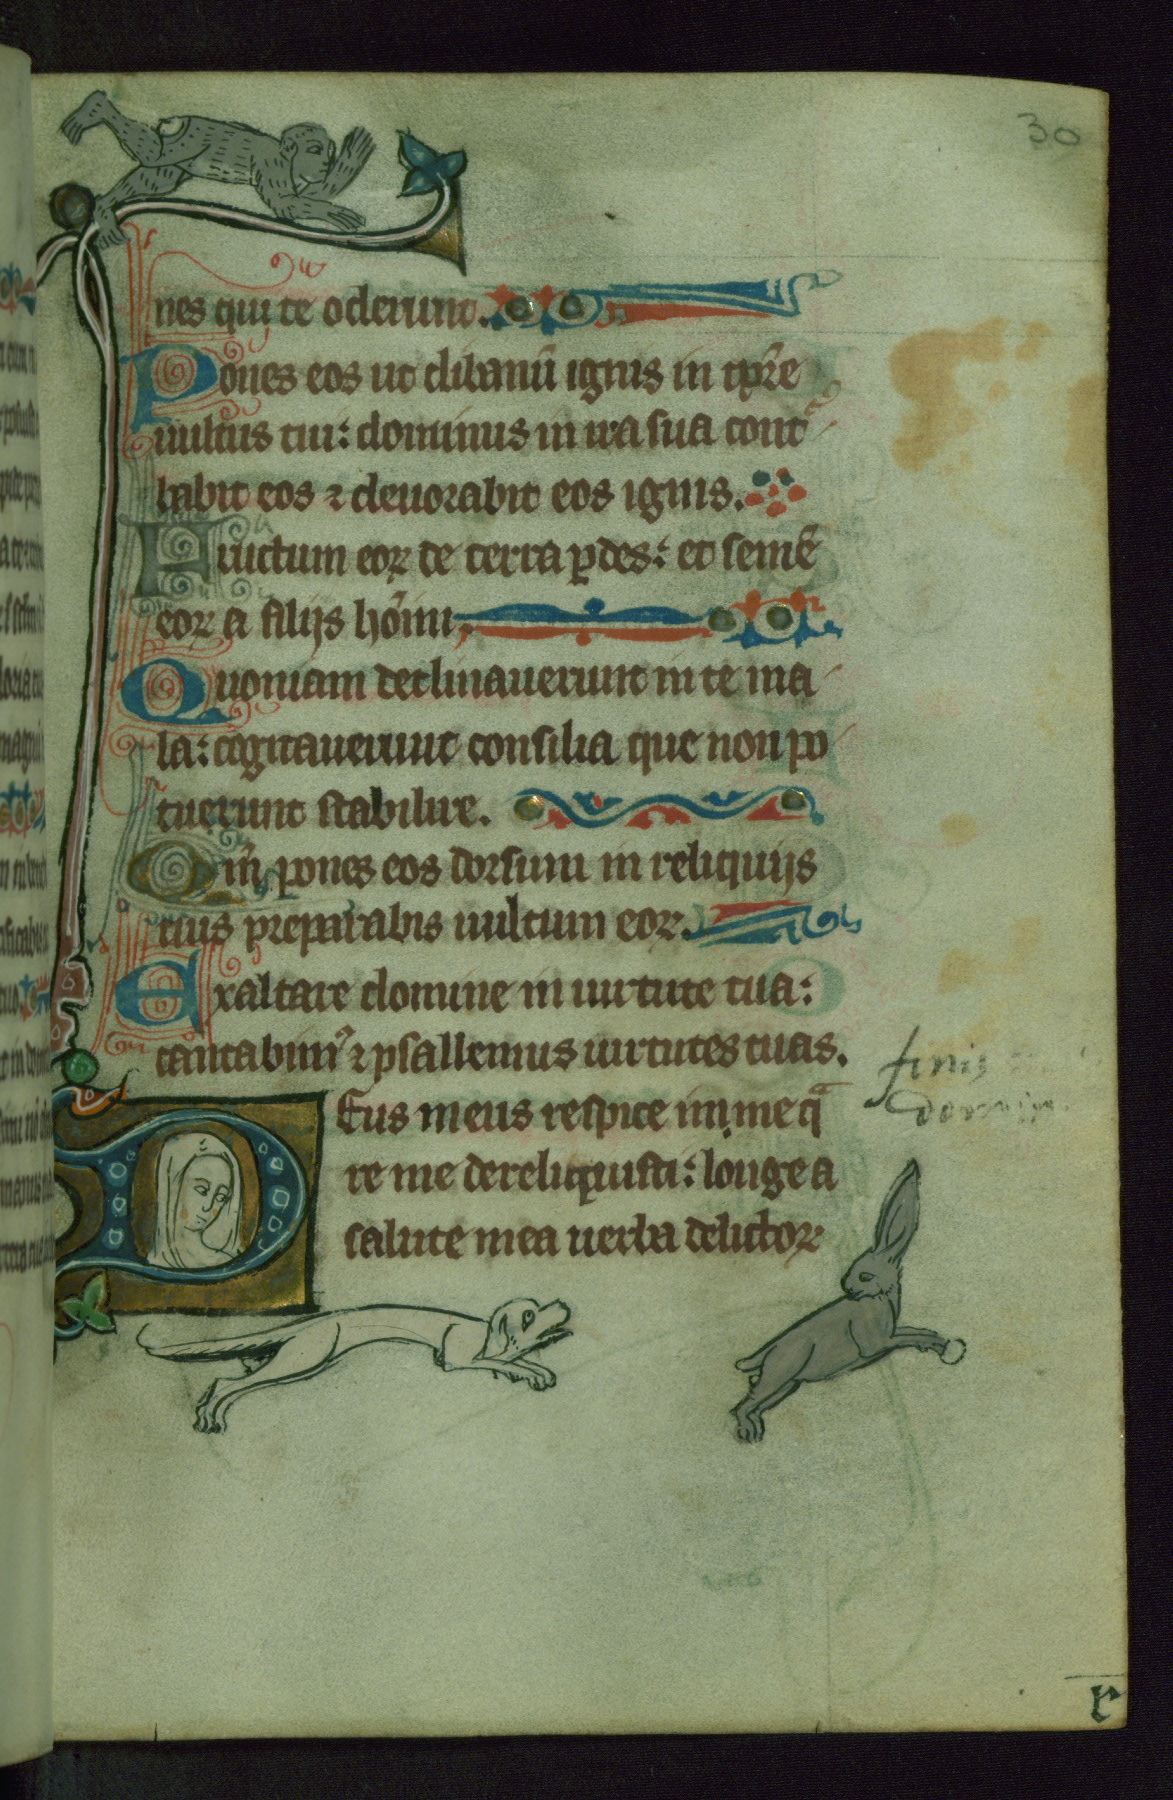 30
nes qui te oderunt.
Pones eos ut clibanũ ignis in tp̃re
uultus tui: dominus in ira sua cont᷑
babit eos ⁊ deuorabit eos ignis.
Fructum eoꝝ de terra ꝑdes: et semẽ
eoꝝ a filijs hõim.
Quoniam declinauerunt in te ma
la: cogitauerunt consilia que non po
tuerunt stabilire.
Qm̃ pones eos dorsum in reliquijs
tuis preparabis uultum eoꝝ.
Exaltare domine in uirtute tua:
cantabimꝰ ⁊ psallemus uirtutes tuas.
Deus meus respice in me qᷓ
re me dereliquisti: longe a
salute mea uerba delictoꝝ
finis